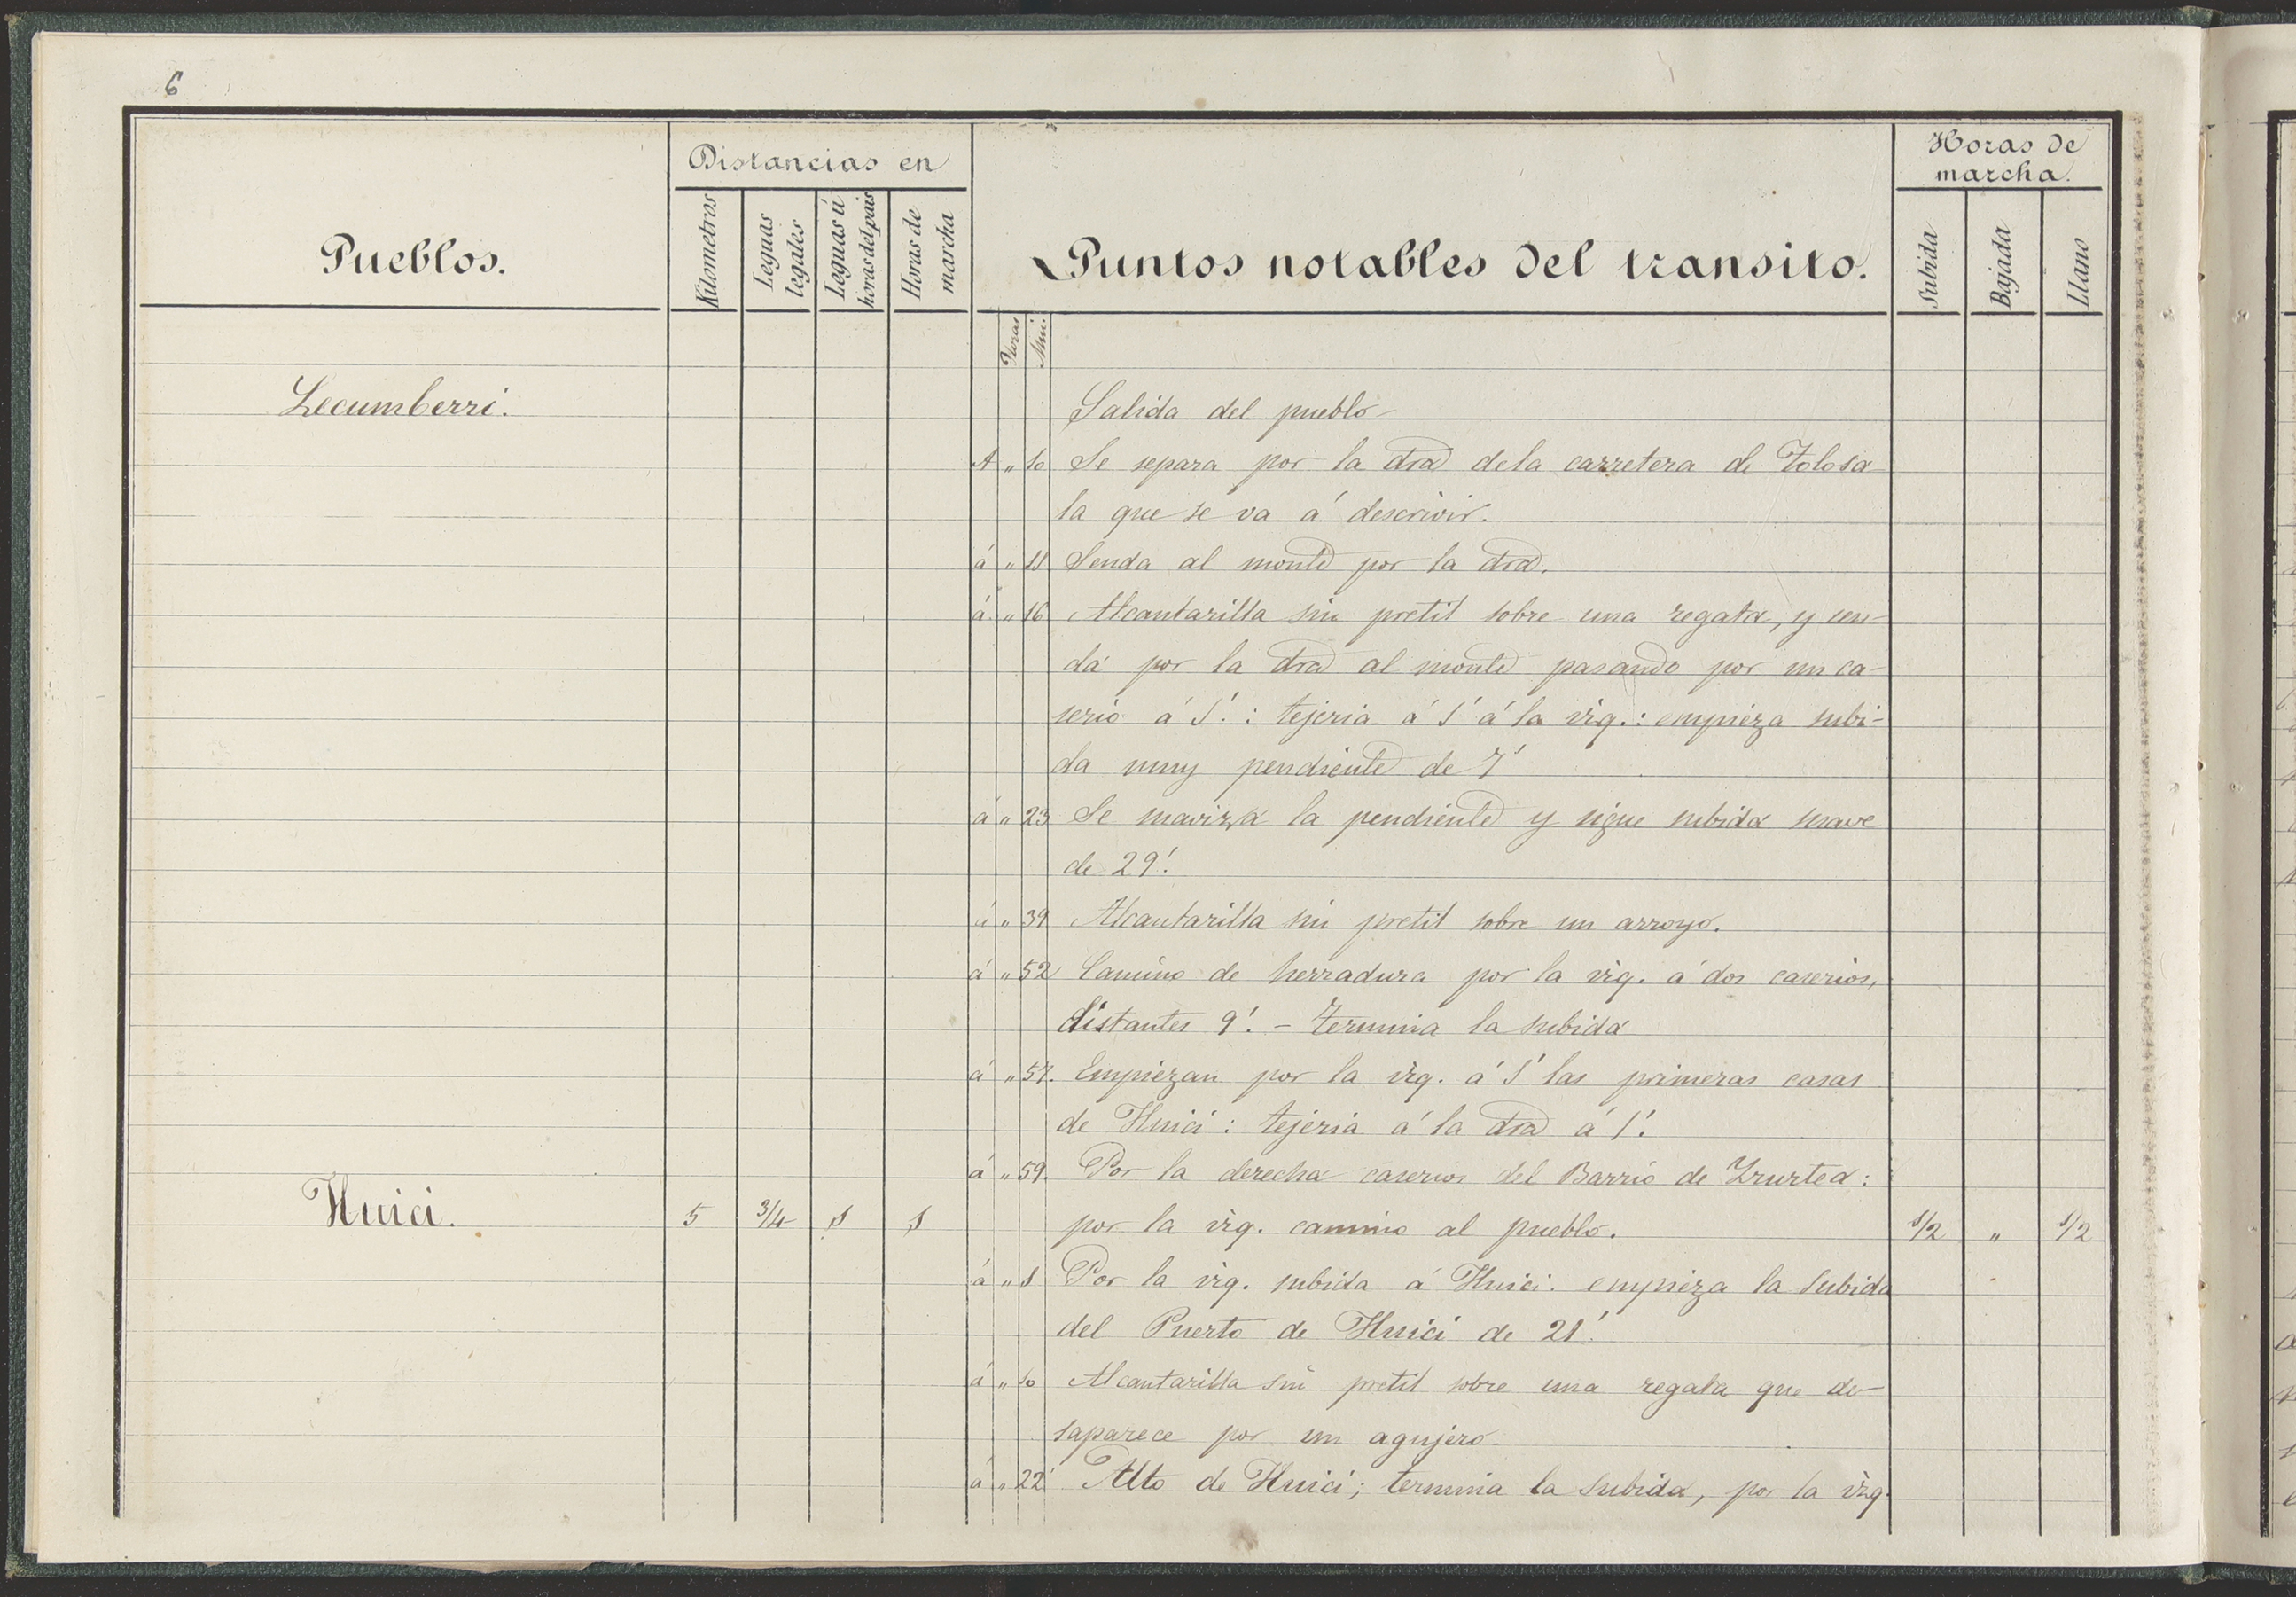 6
Pueblos.
Distancias en
Kilometros
Leguas legales
Leguas ú horas del pais
Horas de marcha
Puntos notables del transito.
Horas de marcha.
Subida
Bajada
Llano
Horas
Min.
Lecumberri. Salida del pueblo
A " 10 Se separa por la dra dela carretera de Tolosa
la que se va á descrivir.
á " 11 Senda al monte por la dra.
á " 16 Alcantarilla sin pretil sobre una regata, y sen-
da por la dra al monte pasando por un ca-
serio á 1'. : tejeria á 1' á la izq. : empieza subi-
da muy pendiente de 7'
á " 23 Se suaviza la pendiente y sigue subida suave
de 29'.
á " 39 Alcantarilla sin pretil sobre un arroyo.
á " 52 Camino de herradura por la izq. á dos caserios,
distantes 9'. - Termina la subida
á " 57. Empiezan por la izq. á 1' las primeras casas
de Huici : tejeria á la dra á 1'.
á " 59. Por la derecha caserios del Barrio de Yrurtea :
Huici. 5 3/4 1 1 por la izq. camino al pueblo. 1/2 " 1/2
á " 1 Por la izq. subida á Huici. empieza la subida
del Puerto de Huici de 21'.
á " 10 Alcantarilla sin pretil sobre una regata que de-
saparece por un agujero.
á " 22' Alto de Huici; termina la subida, por la izq.